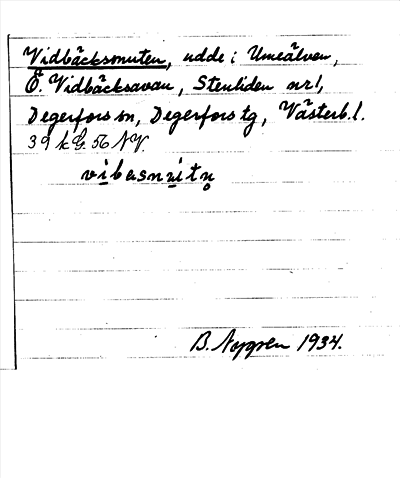 Vidbäcksnuten, udde i Umeälven,
Ö. Vidbäcksavan, Stenliden nr 1,
Degerfors sn, Degerfors tg, Västerb.l.
39 k G. 56 NV.
B. Nygren 1934.